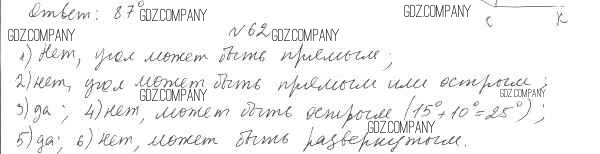 Ответ: 87° GDZ.COMPANY GDZ.COMPANY C K
GDZ.COMPANY №62
1) Нет, угол может быть прямым;
2) нет, угол может быть прямым или острым;
GDZ.COMPANY GDZ.COMPANY
3) да; 4) нет, может быть острым (15°+10°=25°);
GDZ.COMPANY
5) да; 6) нет, может быть развернутым.